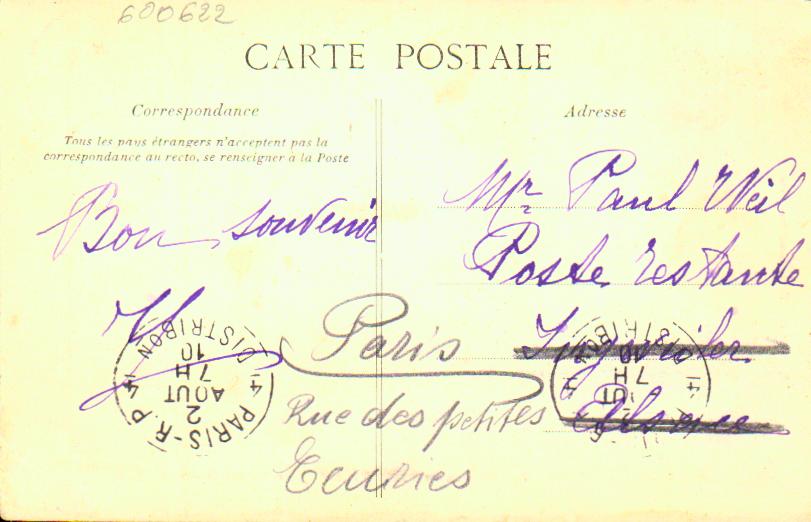 600622
CARTE POSTALE
Correspondance
Tous les pays étrangers n'acceptent pas la
correspondance au recto, se renseigner à la Poste
Bon souvenir
Adresse
Mr Paul Weil
Poste restante
Ingwiler
Alsace
Paris
Rue des petites
Ecuries
PARIS-R.P
DISTRIBON
4 4
7H
2
AOUT
10
DISTRIBON
7H
10
4